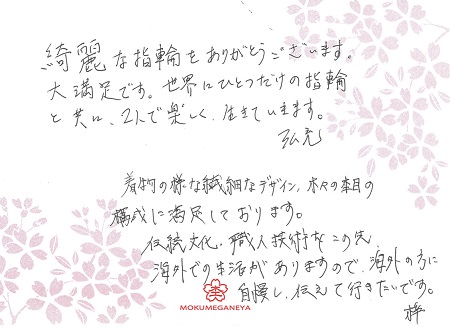 綺麗な指輪をありがとうございます。
大満足です。世界にひとつだけの指輪
と共に、2人で楽しく、生きていきます。
弘充
着物の様な繊細なデザイン、木々の木目の
構成に満足しております。
伝統文化・職人技術をこの先、
海外での生活がありますので、海外の方に
自慢し、伝えて行きたいです。
梓
MOKUMEGANEYA